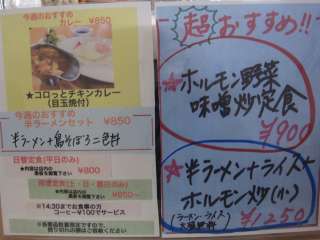 今週のおすすめ
カレー ¥850
★コロっとチキンカレー
(目玉焼付)
今週のおすすめ
半ラーメンセット ¥850
半ラーメン+鶏そぼろ二色丼
日替定食(平日のみ)
¥800
¥850
※14:30までお食事の方
コーヒー¥100でサービス
超おすすめ!!
★ホルモン野菜
味噌炒定食
¥900
★半ラーメン+ライス+
ホルモン炒(小)
¥1250